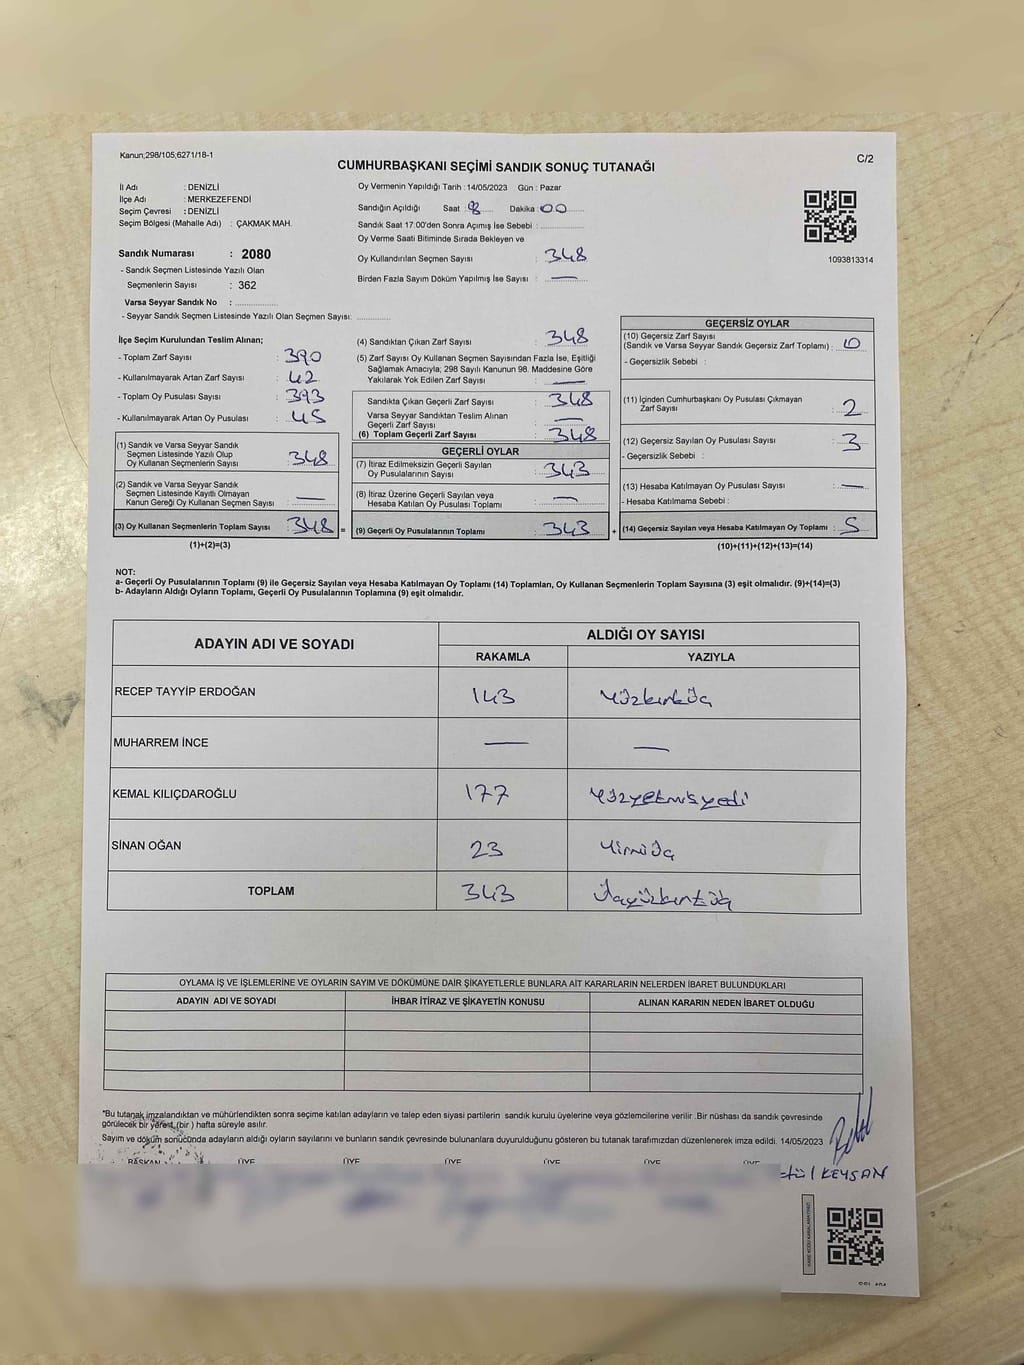 Kanun;298/105;6271/18-1
C/2
CUMHURBAŞKANI SEÇİMİ SANDIK SONUÇ TUTANAĞI
İl Adı : DENİZLİ
İlçe Adı : MERKEZEFENDİ
Seçim Çevresi : DENİZLİ
Seçim Bölgesi (Mahalle Adı) : ÇAKMAK MAH.
Sandık Numarası : 2080
- Sandık Seçmen Listesinde Yazılı Olan
Seçmenlerin Sayısı : 362
Varsa Seyyar Sandık No : ..............
- Seyyar Sandık Seçmen Listesinde Yazılı Olan Seçmen Sayısı: ............
Oy Vermenin Yapıldığı Tarih : 14/05/2023 Gün : Pazar
Sandığın Açıldığı Saat : 8 Dakika : 00
Sandık Saat 17:00'den Sonra Açımış İse Sebebi : ..............
Oy Verme Saati Bitiminde Sırada Bekleyen ve
Oy Kullandırılan Seçmen Sayısı : 348
Birden Fazla Sayım Döküm Yapılmış İse Sayısı : —
1093813314
İlçe Seçim Kurulundan Teslim Alınan;
- Toplam Zarf Sayısı : 390
- Kullanılmayarak Artan Zarf Sayısı : 42
- Toplam Oy Pusulası Sayısı : 393
- Kullanılmayarak Artan Oy Pusulası : 45
(1) Sandık ve Varsa Seyyar Sandık
Seçmen Listesinde Yazılı Olup
Oy Kullanan Seçmenlerin Sayısı : 348
(2) Sandık ve Varsa Seyyar Sandık
Seçmen Listesinde Kayıtlı Olmayan
Kanun Gereği Oy Kullanan Seçmen Sayısı : —
(3) Oy Kullanan Seçmenlerin Toplam Sayısı : 348 =
(1)+(2)=(3)
(4) Sandıktan Çıkan Zarf Sayısı : 348
(5) Zarf Sayısı Oy Kullanan Seçmen Sayısından Fazla İse, Eşitliği
Sağlamak Amacıyla; 298 Sayılı Kanunun 98. Maddesine Göre
Yakılarak Yok Edilen Zarf Sayısı : —
Sandıkta Çıkan Geçerli Zarf Sayısı : 348
Varsa Seyyar Sandıktan Teslim Alınan
Geçerli Zarf Sayısı : —
(6) Toplam Geçerli Zarf Sayısı : 348
GEÇERLİ OYLAR
(7) İtiraz Edilmeksizin Geçerli Sayılan
Oy Pusulalarının Sayısı : 343
(8) İtiraz Üzerine Geçerli Sayılan veya
Hesaba Katılan Oy Pusulası Toplamı : —
(9) Geçerli Oy Pusulalarının Toplamı : 343 +
GEÇERSİZ OYLAR
(10) Geçersiz Zarf Sayısı
(Sandık ve Varsa Seyyar Sandık Geçersiz Zarf Toplamı) : 0
- Geçersizlik Sebebi :
(11) İçinden Cumhurbaşkanı Oy Pusulası Çıkmayan
Zarf Sayısı : 2
(12) Geçersiz Sayılan Oy Pusulası Sayısı : 3
- Geçersizlik Sebebi :
(13) Hesaba Katılmayan Oy Pusulası Sayısı : —
- Hesaba Katılmama Sebebi :
(14) Geçersiz Sayılan veya Hesaba Katılmayan Oy Toplamı : 5
(10)+(11)+(12)+(13)=(14)
NOT:
a- Geçerli Oy Pusulalarının Toplamı (9) ile Geçersiz Sayılan veya Hesaba Katılmayan Oy Toplamı (14) Toplamları, Oy Kullanan Seçmenlerin Toplam Sayısına (3) eşit olmalıdır. (9)+(14)=(3)
b- Adayların Aldığı Oyların Toplamı, Geçerli Oy Pusulalarının Toplamına (9) eşit olmalıdır.
ADAYIN ADI VE SOYADI
ALDIĞI OY SAYISI
RAKAMLA YAZIYLA
RECEP TAYYİP ERDOĞAN 143 Yüzkırküç
MUHARREM İNCE — —
KEMAL KILIÇDAROĞLU 177 Yüzyetmişyedi
SİNAN OĞAN 23 Yirmiüç
TOPLAM 343 Üçyüzkırküç
OYLAMA İŞ VE İŞLEMLERİNE VE OYLARIN SAYIM VE DÖKÜMÜNE DAİR ŞİKAYETLERLE BUNLARA AİT KARARLARIN NELERDEN İBARET BULUNDUKLARI
ADAYIN ADI VE SOYADI İHBAR İTİRAZ VE ŞİKAYETİN KONUSU ALINAN KARARIN NEDEN İBARET OLDUĞU
"Bu tutanak imzalandıktan ve mühürlendikten sonra seçime katılan adayların ve talep eden siyasi partilerin sandık kurulu üyelerine veya gözlemcilerine verilir .Bir nüshası da sandık çevresinde
görülecek bir yerest (bir ) hafta süreyle asılır.
Sayım ve döküm sonucunda adayların aldığı oyların sayılarını ve bunların sandık çevresinde bulunanlara duyurulduğunu gösteren bu tutanak tarafımızdan düzenlenerek imza edildi. 14/05/2023
BAŞKAN ÜYE ÜYE ÜYE ÜYE ÜYE ÜYE
KEYSAN